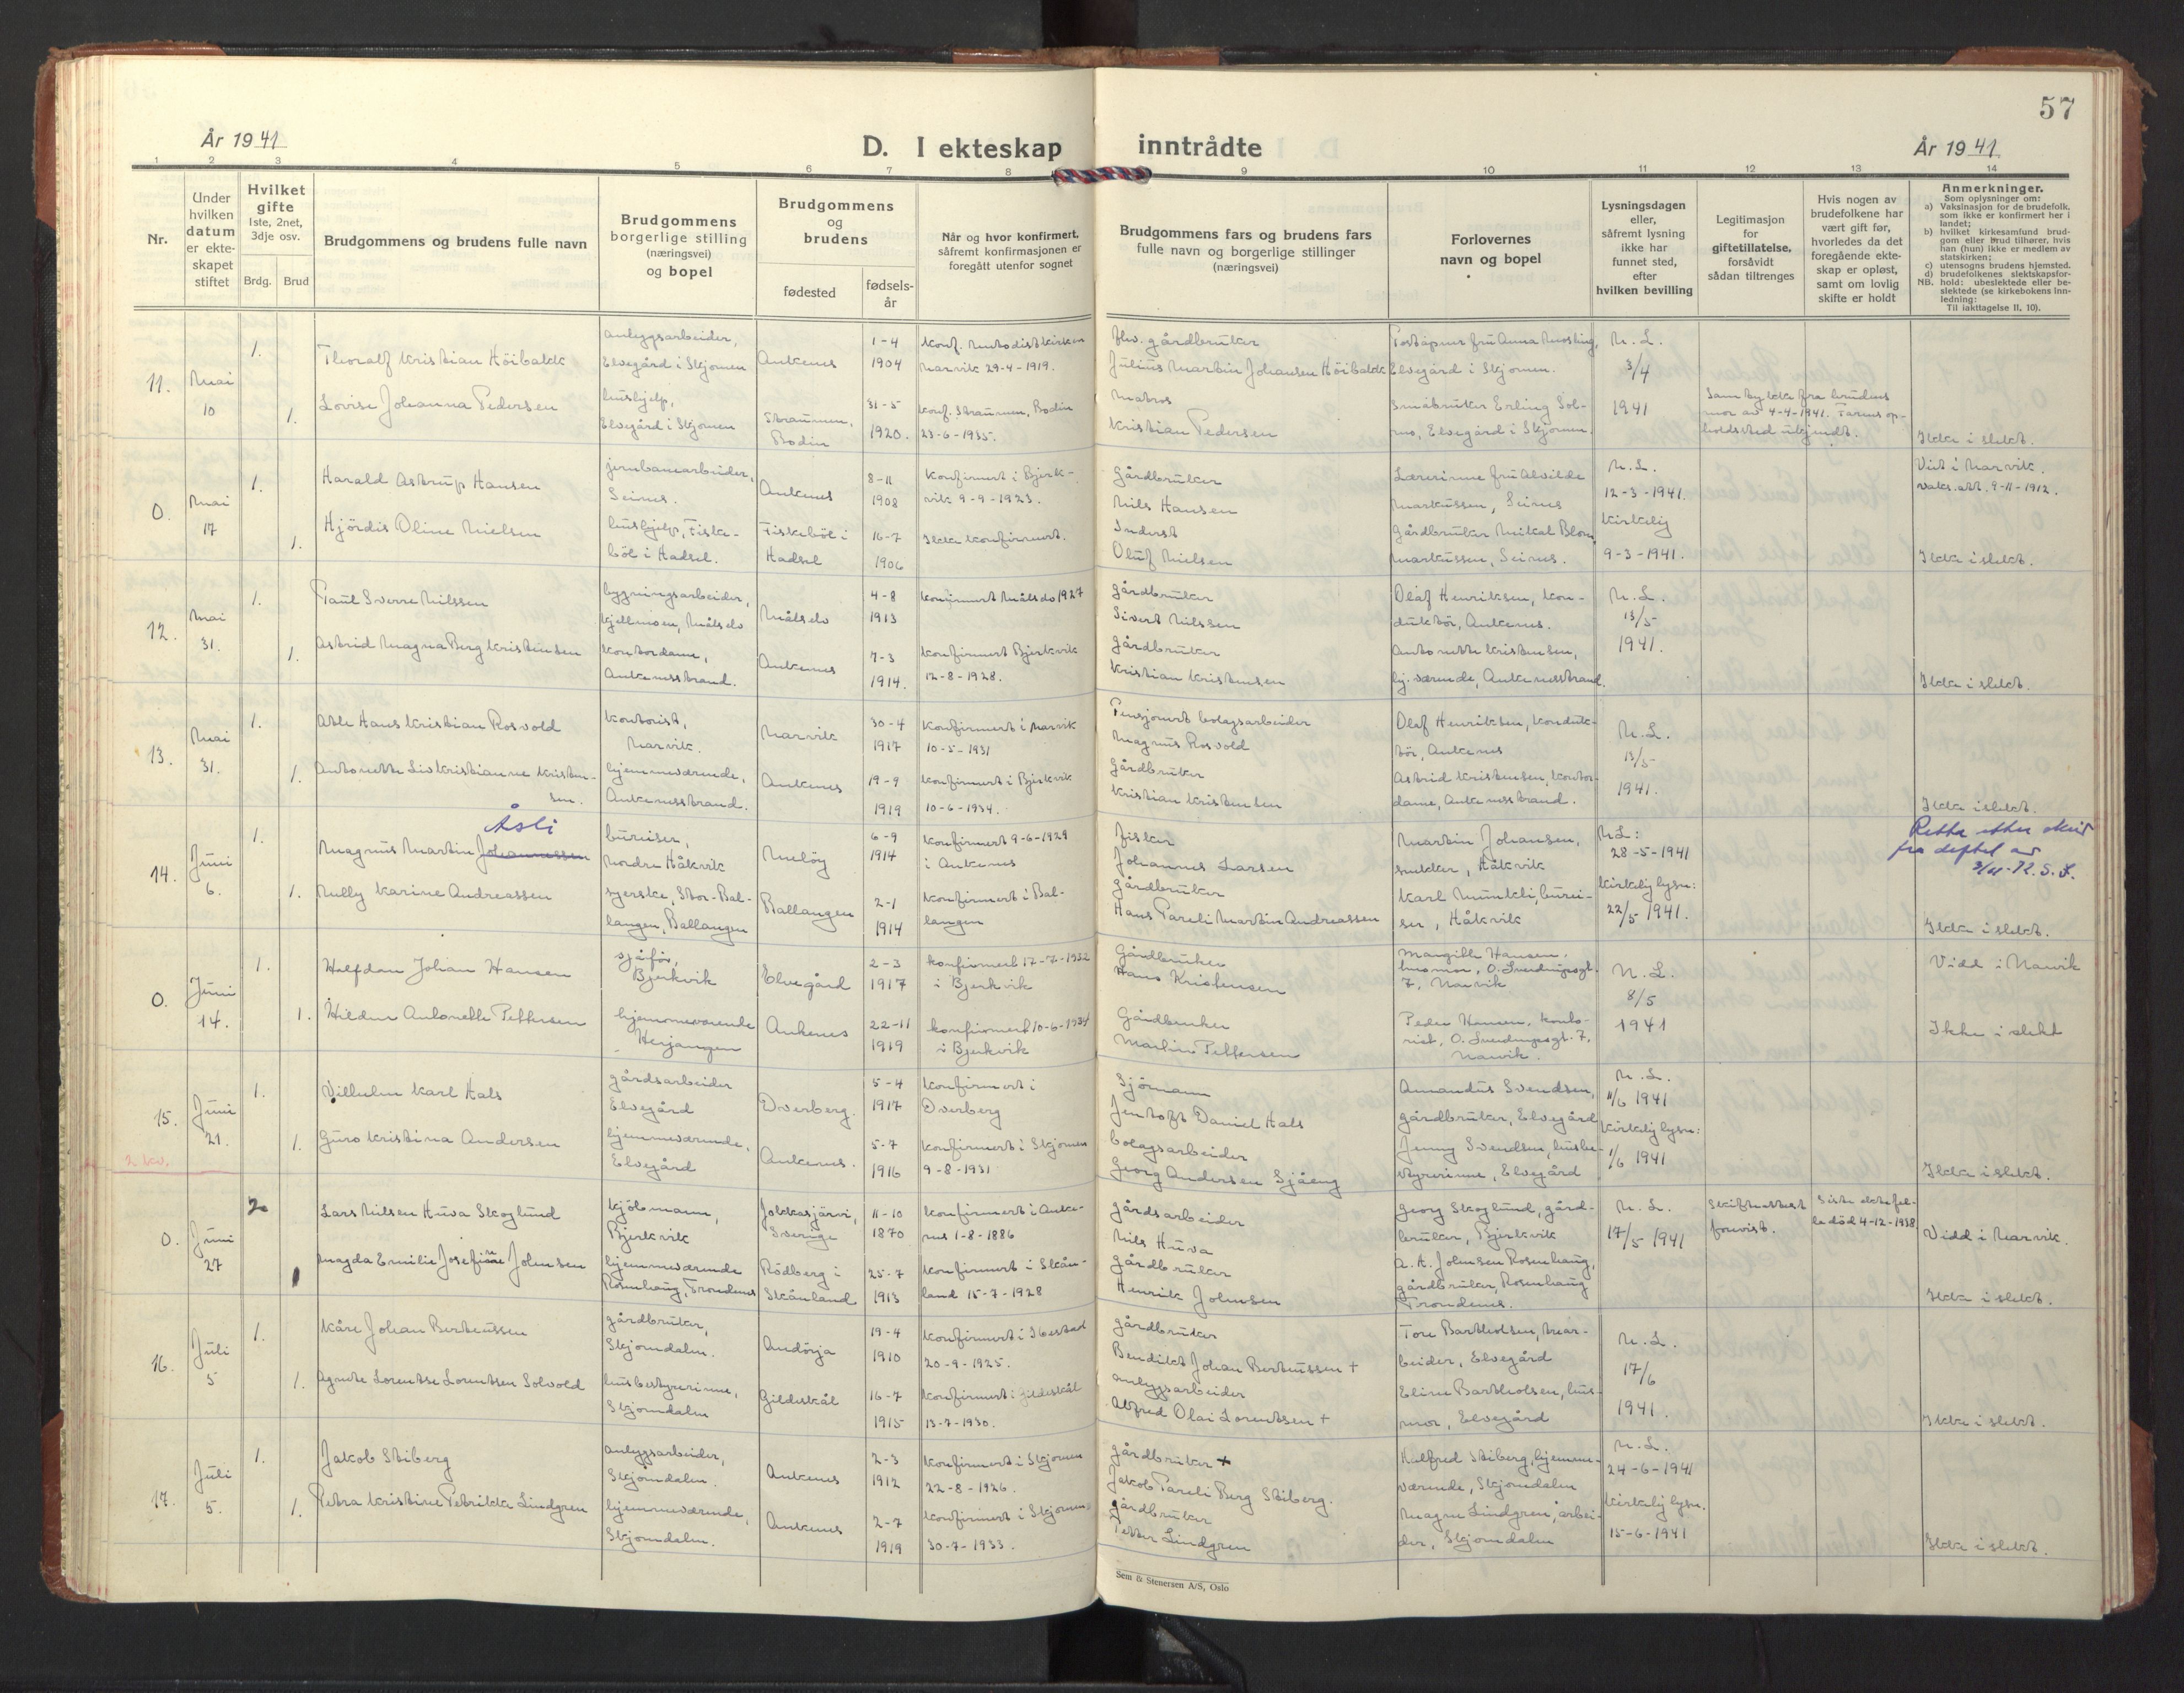 57
År 1941
D. I ekteskap inntrådte
År 1941
1 2 3 4 5 6 7 8 9 10 11 12 13 14
Nr.
Under
hvilken
datum
er ekte-
skapet
stiftet
Hvilket
gifte
1ste, 2net,
3dje osv.
Brdg. Brud
Brudgommens og brudens fulle navn
Brudgommens
borgerlige stilling
(næringsvei)
og bopel
Brudgommens
og
brudens
fødested
fødsels-
år
Når og hvor konfirmert,
såfremt konfirmasjonen er
foregått utenfor sognet
Brudgommens fars og brudens fars
fulle navn og borgerlige stillinger
(næringsvei)
Forlovernes
navn og bopel
Lysningsdagen
eller,
såfremt lysning
ikke har
funnet sted,
efter
hvilken bevilling
Legitimasjon
for
giftetillatelse,
forsåvidt
sådan tiltrenges
Hvis nogen av
brudefolkene har
vært gift før,
hvorledes da det
foregående ekte-
skap er opløst,
samt om lovlig
skifte er holdt
Anmerkninger.
Som oplysninger om:
a) Vaksinasjon for de brudefolk,
som ikke er konfirmert her i
landet;
b) hvilket kirkesamfund brud-
gom eller brud tilhører, hvis
han (hun) ikke er medlem av
statskirken;
c) utensogns brudens hjemsted.
d) brudefolkenes slektskapsfor-
NB. hold: ubeslektede eller be-
slektede (se kirkebokens Inn-
ledning:
Til iakttagelse II, 10).
11.
Mai
10
1.
Thoralf Kristian Höibakk
anleggsarbeider,
Elvegård i Skjomen
Ankenes
1-4
1904
Konf. Metodistkirken
Narvik 29-4-1919.
fhv. gårdbruker
Julius Martin Johansen Höibakk
Elvegård i Skjomen.
N. L.
3/4
1941
1.
Lovise Johanna Pedersen
hushjelp,
Elvegård i Skjomen
Straumen,
Bodin
31-5
1920.
Konf. Straumen, Bodin
23-6-1935.
Matros
Kristian Pedersen
Småbruker Erling Sol-
mo, Elvegård i Skjomen.
Samtykke fra brudens
mor av 4-4-1941. Farens op-
holdssted ukjendt.
Ikke i slekt.
0.
Mai
17
1.
Harald Astrup Hansen
jernbanearbeider,
Seines.
Ankenes
8-11
1908
Konfirmert i Bjerk-
vik 9-9-1923.
Gårdbruker
Nils Hansen
Lærerinne fru Alvilde
Markussen, Seines
N. L.
12-3-1941.
Kirkelig
9-3-1941.
Viet i Narvik.
Vaks. att. 9-11-1912.
1.
Hjördis Oline Nielsen
hushjelp, Fiske-
böl i Hadsel.
Fiskeböl i
Hadsel
16-7
1906
Ikke konfirmert.
Inderst
Oluf Nielsen
Gårdbruker Meikal Blom
Markussen, Seines.
Ikke i slekt.
12.
Mai
31.
1.
Paul Sverre Nilssen
bygningsarbeider,
Kjellmoen, Målselv
Målselv
4-8
1913
Konfirmert Målselv 1927
Gårdbruker
Sivert Nilssen
Olaf Henriksen, kon-
duktör, Ankenes.
N. L.
13/5
1941.
1.
Astrid Magna Berg Kristensen
Kontordame,
Ankenesstrand.
Ankenes
7-3
1914.
Konfirmert Bjerkvik
12-8-1928.
Gårdbruker
Kristian Kristensen
Antonette Kristensen,
hj. værende, Ankenesstrand.
Ikke i slekt.
13.
Mai
31.
1.
Atle Hans Kristian Rosvold
Kontorist,
Narvik.
Narvik
30-4
1917
Konfirmert i Narvik
10-5-1931
Pensjonert bolagsarbeider
Magnus Rosvold
Olaf Henriksen, konduk-
tör, Ankenes
N. L.
13/5
1941.
1.
Antonette Liv Kristianne Kristen-
sen.
hjemmeværende,
Ankenesstrand.
Ankenes
19-9
1919
Konfirmert i Bjerkvik
10-6-1934.
Gårdbruker
Kristian Kristensen
Astrid Kristensen, kontor-
dame, Ankenesstrand.
Ikke i slekt.
14.
Juni
6.
1.
Åsli
Magnus Martin Johannessen
bureiser,
Nordre Håkvik
Meløy
6-9
1914
Konfirmert 9-6-1929
i Ankenes
Fisker
Johannes Larsen
Martin Johansen,
snekker, Håkvik
N L:
28-5-1941
Kirkelig lysn:
22/5 1941.
Rettet etter skriv
fra deptet av
1.
Nelly Karine Andreassen
syerske, Stor-Bal-
langen, Ballangen
Ballangen
2-1
1914
Konfirmert i Bal-
langen
Gårdbruker
Hans Pareli Martin Andreassen
Karl Numkli, burei-
ser, Håkvik
Ikke i slekt.
0.
Juni
14.
1.
Halfdan Johan Hansen
sjåför,
Bjerkvik
Elvegård
2-3
1917
konfirmert 17-7-1932
i Bjerkvik
Gårdbruker
Hans Kristensen
Margith Hansen,
husmor, O. Sverdrupsgt.
7, Narvik
N. L.
8/5
1941
Vidd i Narvik
1.
Hildur Antonette Pettersen
hjemmeværende
Herjangen
Ankenes
22-11
1919
konfirmert 10-6-1934
i Bjerkvik
Gårdbruker
Martin Pettersen
Peder Hansen, konto-
rist, O. Sverdrupsgt. 7,
Narvik.
Ikke i slekt
15.
Juni
21.
1.
Vilhelm Karl Hals
gårdsarbeider
Elvegård
Dverberg.
5-4
1917
Konfirmert i
Dverberg
Sjömann
Jentoft Daniel Hals
Amandus Svendsen,
gårdbruker, Elvegård
N. L.
11/6 1941
Kirkelig lysn:
1/6 1941
1.
Guro Kristina Andersen
hjemmeværende,
Elvegård
Ankenes.
5-7
1916
Konfirmert i Skjomen
9-8-1931
bolagsarbeider
Georg Andersen Sjåeng
Jenny Svendsen, husbe-
styrerinne, Elvegård
Ikke i slekt.
2 kv.
0.
Juni
27
2
Lars Nilsen Huva Skoglund
Kjölsmann,
Bjerkvik
Jokkasjärvi,
Sverige
11-10
1870
Konfirmert i Anke-
nes 1-8-1886
gårdsarbeider
Nils Huva
Georg Skoglund, gård-
bruker, Bjerkvik
N. L.
17/5 1941
Skifteattest
forevist.
Siste ektefel-
le död 4-12-1938
Vidd i Narvik.
1
Magda Emilie Josefine Johnsen
hjemmeværende
Rosenhaug, Trondenes
Rödberg i
Skånland
25-7
1913
Konfirmert i Skån-
land 15-7-1928
Gårdbruker
Henrik Johnsen
A. A. Johnsen Rosenhaug,
gårdbruker, Rosenhaug
Trondenes.
Ikke i slekt.
16.
Juli
5
1.
Kåre Johan Berteussen
gårdbruker,
Skjomdalen.
Andörja
19-4
1910
Konfirmert i Ibestad
20-9-1925.
Gårdbruker
Bendikt Johan Berteussen +
Tore Bartholsen, trear-
beider, Elvegård
N. L.
17/6
1941.
1.
Agnete Lorentse Lorentsen Solvold
husbestyrerinne,
Skjomdalen
Gildeskål
16-7
1915
Konfirmert i Gildeskål
13-7-1930.
anleggsarbeider
Alfred Olai Lorentsen +
Eline Bartholsen, hus-
mor, Elvegård
Ikke i slekt.
17.
Juli
5.
1.
Jakob Stiberg
anleggsarbeider,
Skjomdalen.
Ankenes
2-3
1912
Konfirmert i Skjomen
22-8-1926.
gårdbruker +
Jakob Pareli Berg Stiberg.
Halfred Stiberg, hjemme-
værende, Skjomdalen
N. L.
24-6-1941
Kirkelig lysn.
15-6-1941
1.
Petra Kristine Petrikke Lindgren
hjemmeværende,
Skjomdalen.
Ankenes
2-7
1919
Konfirmert i Skjomen
30-7-1933.
gårdbruker
Petter Lindgren
Magne Lindgren, arbei-
der, Skjomdalen
Ikke i slekt.
Sem & Stenersen A/S, Oslo